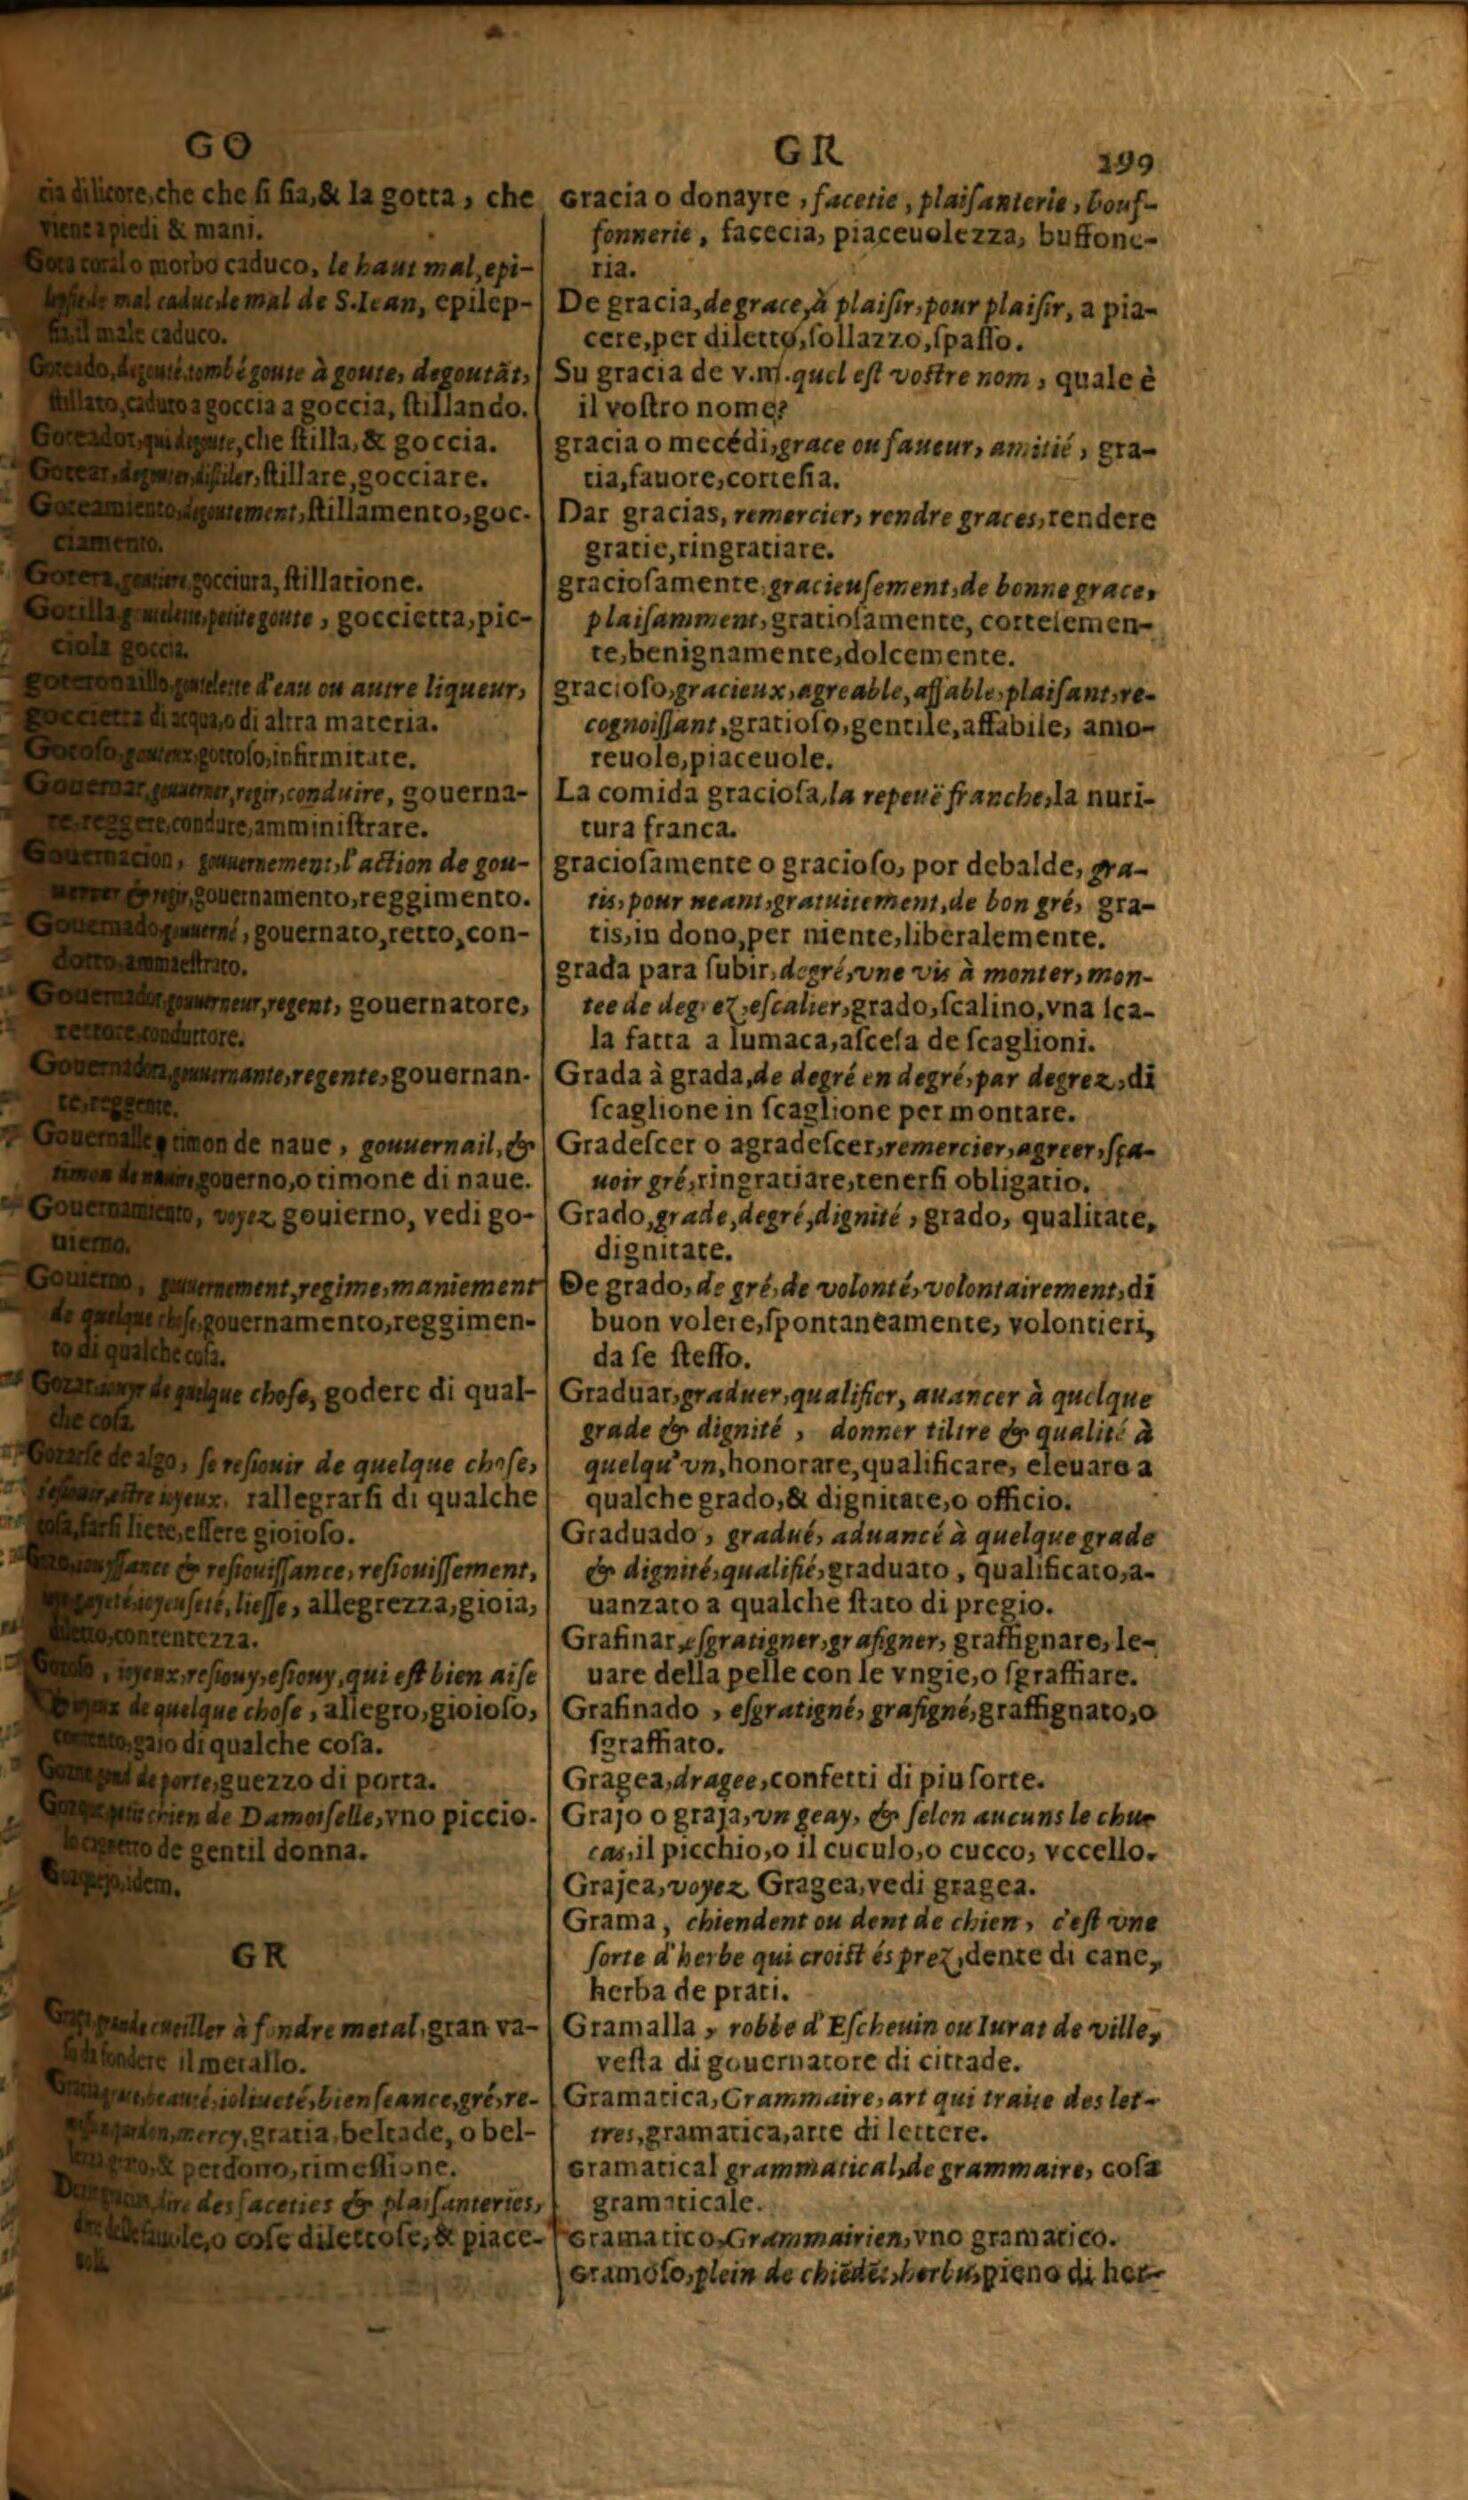 GO
cia di licore, che che si sia, & la gotta, che
viene a piedi & mani.
Gota coral o morbo caduco, le haut mal, epi-
mal caduc, le mal de S. Iean, epilep-
sia, il male caduco.
Goteado, degouté, tombé goute à goute, degoutãt,
stillato, caduto a goccia a goccia, stillando.
Goteador, qui degoute, che stilla, & goccia.
Gotear, degouter, distiler, stillare, gocciare.
Goteamiento, degoutement, stillamento, goc-
ciamento.
Gotera, goutiere, gocciura, stillatione.
Gotilla, petite goute, goccietta, pic-
ciola goccia.
d'eau ou autre liqueur,
goccietta di acqua, o di altra materia.
Gotoso, gouteux, gottoso, infirmitate.
Gouernar, gouuerner, regir, conduire, gouerna-
re, reggere, condure, amministrare.
Gouernacion, gouuernement, l'action de gou-
uerner & regir, gouernamento, reggimento.
Gouernado, gouuerné, gouernato, retto, con-
dotto, ammaestrato.
Gouernador, gouuerneur, regent, gouernatore,
rettore, conduttore.
Gouernadora, gouuernante, regente, gouernan-
te, reggente.
Gouernalle o timon de naue, gouuernail, &
timon de nauire, gouerno, o timone di naue.
Gouernamiento, voyez gouierno, vedi go-
uierno.
Gouierno, gouuernement, regime, maniement
de quelque chose, gouernamento, reggimen-
to di qualche cosa.
Gozar, iouyr de quelque chose, godere di qual-
che cosa.
Gozarse de algo, se resiouir de quelque chose,
estre ioyeux, rallegrarsi di qualche
cosa, farsi liete, essere gioioso.
Gozo, iouyssance & resiouissance, resiouissement,
ioyeuseté, liesse, allegrezza, gioia,
diletto, contentezza.
Gozoso, ioyeux, resiouy, esiouy, qui est bien aise
de quelque chose, allegro, gioioso,
contento, gaio di qualche cosa.
de porte, guezzo di porta.
petit chien de Damoiselle, vno piccio-
de gentil donna.
idem.
GR
cueiller à fondre metal, gran va-
so da fondere il metallo.
beauté, ioliueté, bien seance, gré, re-
mercy, gratia, beltade, o bel-
& perdono, rimessione.
dire des faceties & plaisanteries,
o cose dilettose, & piace-
uoli.
GR 299
Gracia o donayre, facetie, plaisanterie, bouf-
fonnerie, facecia, piaceuolezza, buffone-
ria.
De gracia, de grace, à plaisir, pour plaisir, a pia-
cere, per diletto, sollazzo, spasso.
Su gracia de v.m. quel est vostre nom, quale è
il vostro nome?
gracia o mecédi, grace ou faueur, amitié, gra-
tia, fauore, cortesia.
Dar gracias, remercier, rendre graces, rendere
gratie, ringratiare.
graciosamente, gracieusement, de bonne grace,
plaisamment, gratiosamente, cortesemen-
te, benignamente, dolcemente.
gracioso, gracieux, agreable, affable, plaisant, re-
cognoissant, gratioso, gentile, affabile, amo-
reuole, piaceuole.
La comida graciosa, la repeuë franche, la nuri-
tura franca.
graciosamente o gracioso, por debalde, gra-
tis, pour neant, gratuitement, de bon gré, gra-
tis, in dono, per niente, liberalemente.
grada para subir, degré, vne vis à monter, mon-
tee de degrez, escalier, grado, scalino, vna sca-
la fatta a lumaca, ascesa de scaglioni.
Grada à grada, de degré en degré, par degrez, di
scaglione in scaglione per montare.
Gradescer o agradescer, remercier, agreer, sça-
uoir gré, ringratiare, tenersi obligatio.
Grado, grade, degré, dignité, grado, qualitate,
dignitate.
De grado, de gré, de volonté, volontairement, di
buon volere, spontaneamente, volontieri,
da se stesso.
Graduar, graduer, qualifier, auancer à quelque
grade & dignité, donner tiltre & qualité à
quelqu'vn, honorare, qualificare, eleuare a
qualche grado, & dignitate, o officio.
Graduado, gradué, aduancé à quelque grade
& dignité, qualifié, graduato, qualificato, a-
uanzato a qualche stato di pregio.
Grafinar, esgratigner, grafigner, graffignare, le-
uare della pelle con le vngie, o sgraffiare.
Grafinado, esgratigné, grafigné, graffignato, o
sgraffiato.
Gragea, dragee, confetti di piu sorte.
Grajo o graja, vn geay, & selon aucuns le chu-
cas, il picchio, o il cuculo, o cucco, vccello.
Grajea, voyez Gragea, vedi gragea.
Grama, chiendent ou dent de chien, c'est vne
sorte d'herbe qui croist és prez, dente di cane,
herba de prati.
Gramalla, robbe d'Escheuin ou Iurat de ville,
vesta di gouernatore di cittade.
Gramatica, Grammaire, art qui traite des let-
tres, gramatica, arte di lettere.
Gramatical grammatical, de grammaire, cosa
gramaticale.
Gramatico, Grammairien, vno gramatico.
Gramoso, plein de chiẽdẽt, herbu, pieno di her-